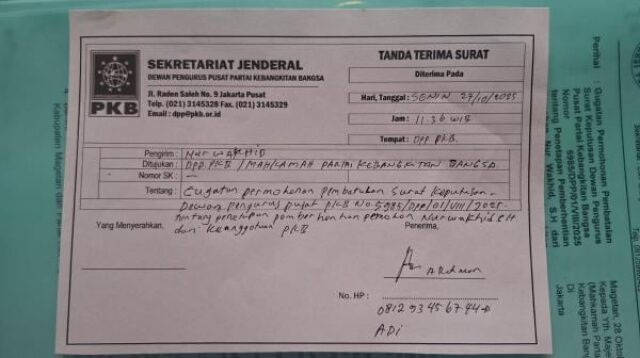 PKB
SEKRETARIAT JENDERAL
DEWAN PENGURUS PUSAT PARTAI KEBANGKITAN BANGSA
Jl. Raden Saleh No. 9 Jakarta Pusat
Telp. (021) 3145328 Fax. (021) 3145329
Email : dpp@pkb.or.id
TANDA TERIMA SURAT
Diterima Pada
Hari, Tanggal : SENIN 27/10/2025
Jam : 11.36 WIB
Tempat : DPP PKB.
Pengirim : Nur Wakhid
Ditujukan : DPP.PKB / MAHKAMAH PARTAI KEBANGKITAN BANGSA.
Nomor SK : —
Tentang : Gugatan permohonan pembatalan Surat Keputusan
Dewan pengurus pusat PKB No. 5985/DPP/01/VIII/2025.
tentang penetapan pemberhentian pemohon Nurwakhid S.H
dari Keanggotaan PKB
Yang Menyerahkan,
Penerima,
No. HP :
ADI
Perihal : Gugatan Permohonan Pembatalan
Surat Keputusan Dewan Pengurus
Pusat Partai Kebangkitan Bangsa
Nomor 5985/DPP/01/VIII/2025
tentang Penetapan Pemberhentian
Nur Wakhid, S.H dari
Kabupaten Magetan dan
Magetan, 28 Okto
Kepada Yth. Maje
(Mahkamah Part
Kebangkitan Bang
Di
Jakarta